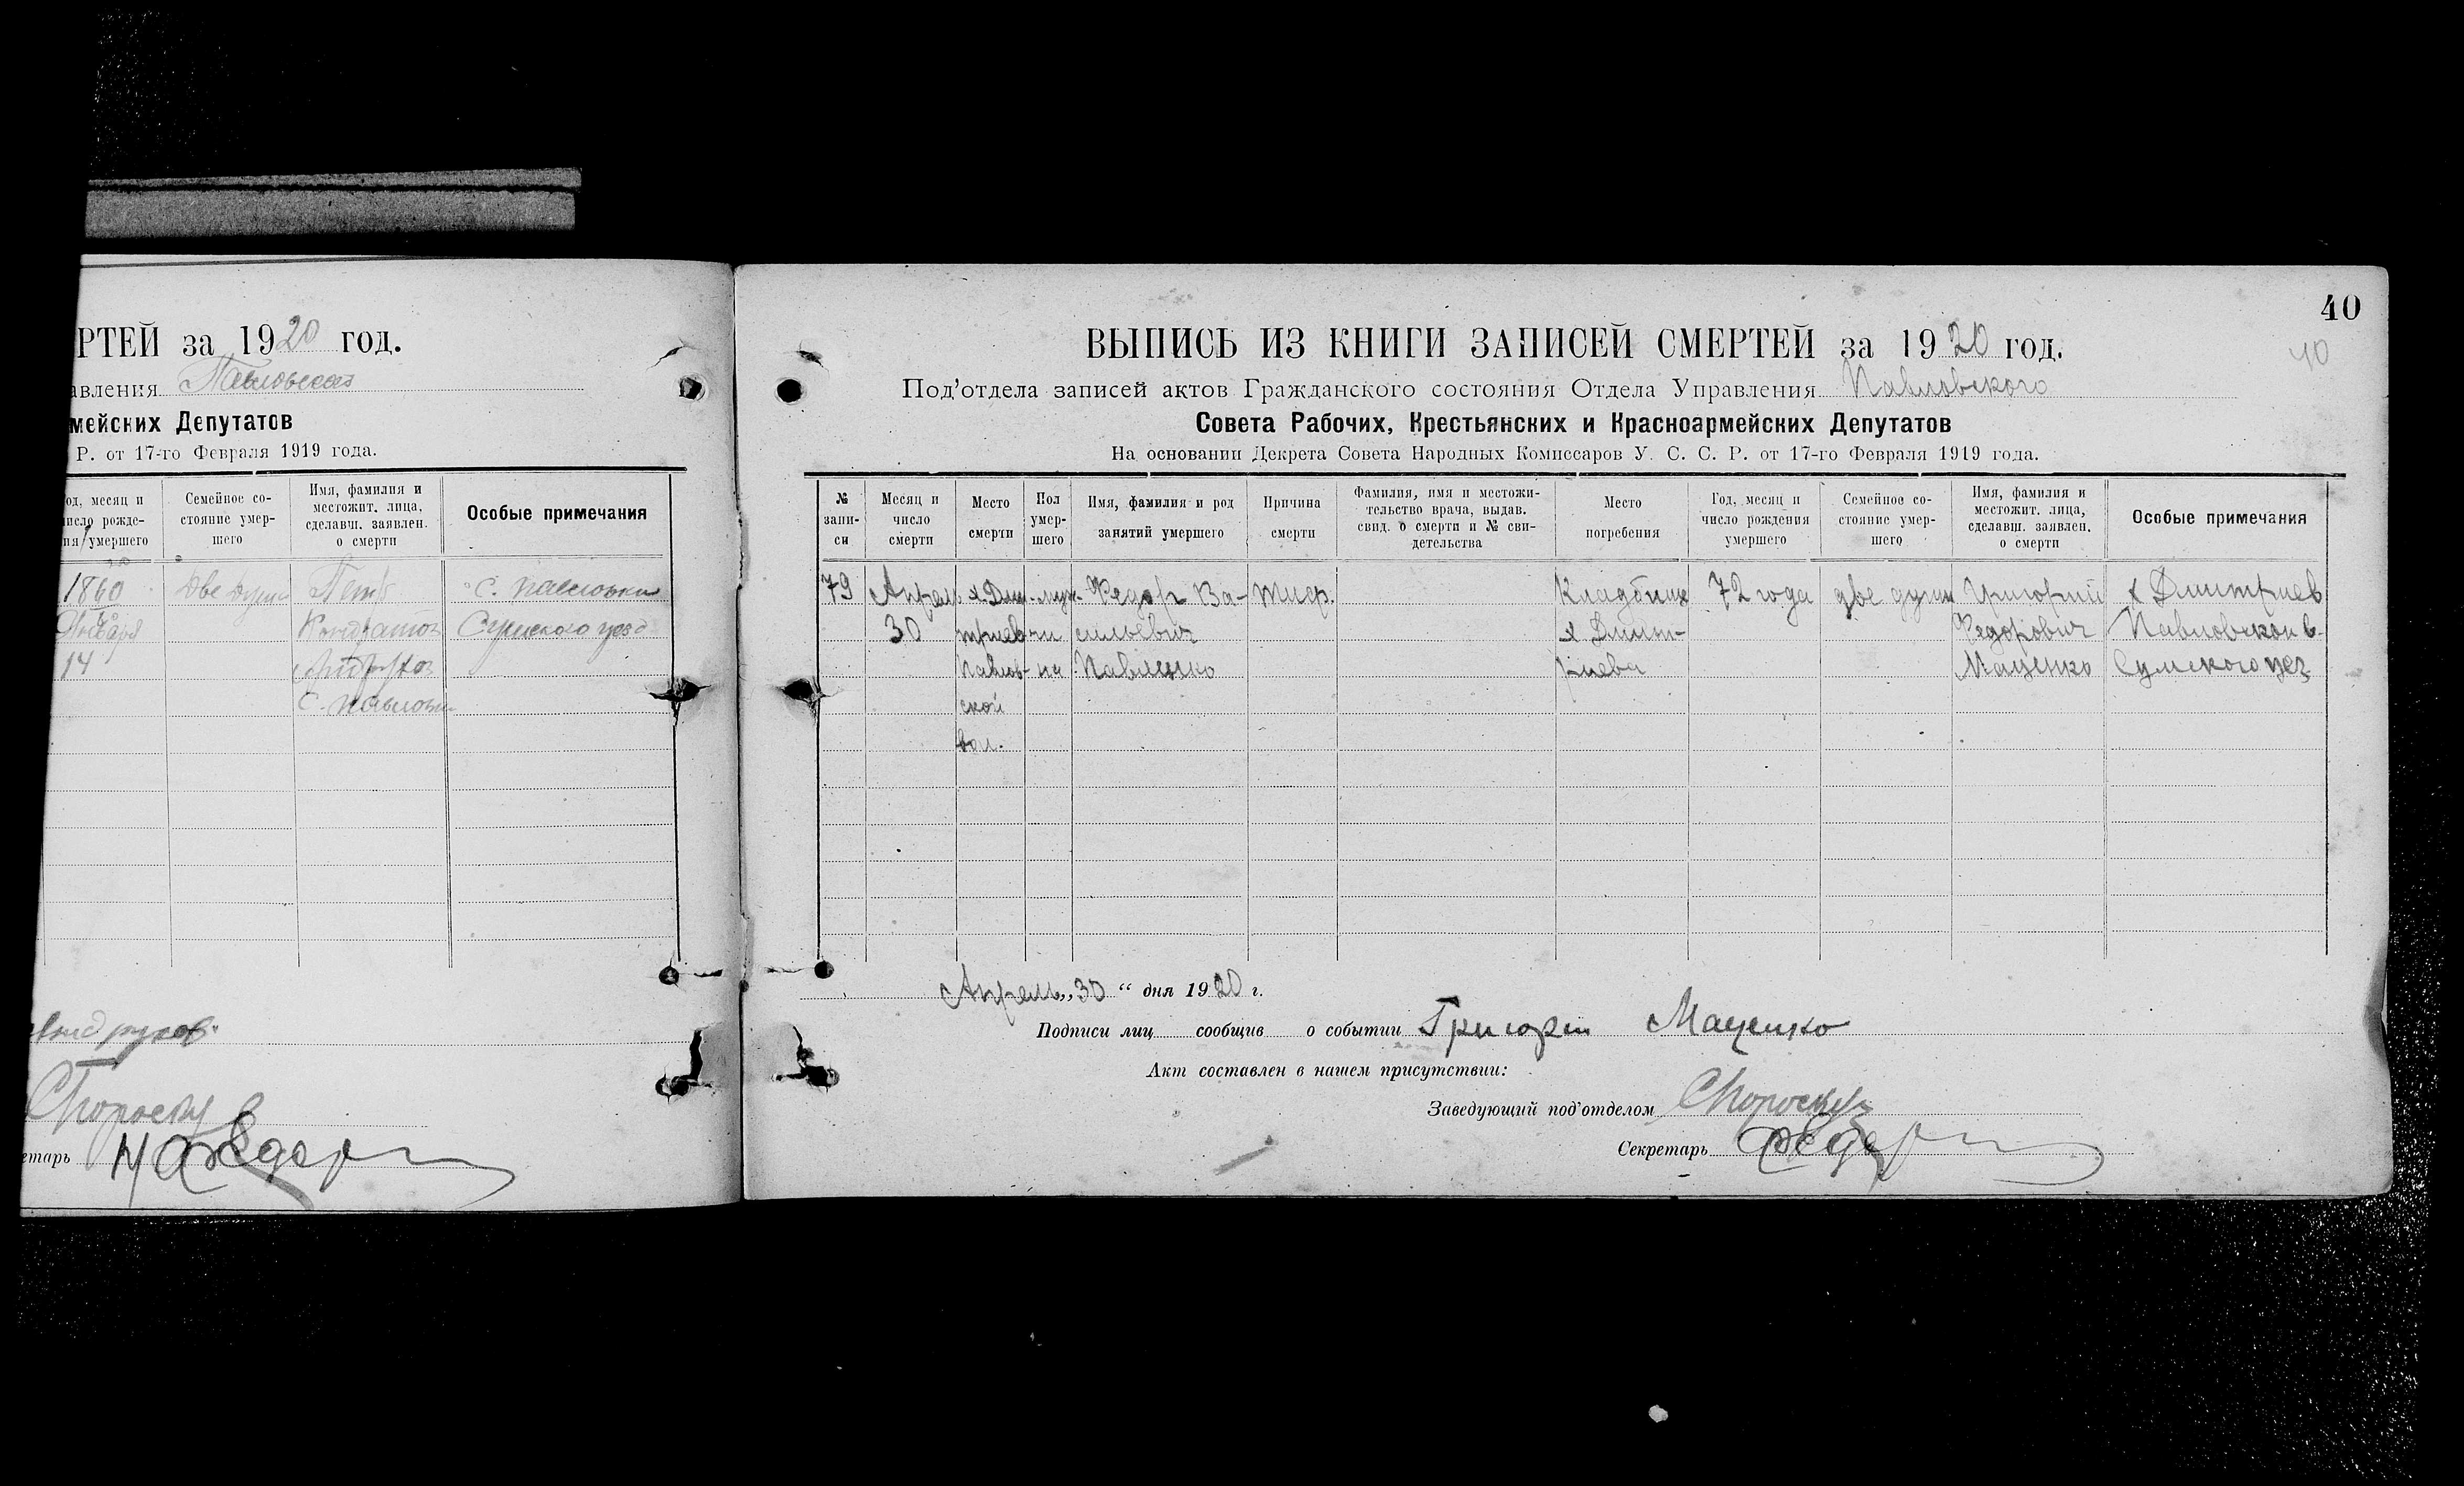 РТЕЙ за 1920 год.
авления Павловская
мейских Депутатов
Р. от 17-го Февраля 1919 года.
од, месяц и
число рожде-
ния умершего
Семейное со-
стояние умер-
шего
Имя, фамилия и
местожит. лица,
сделавш. заявлен.
о смерти
Особые примечания
1860
Января
14
Две души
Петр
Кондратов
С. Павловки
С. Павловки
Сумского уезд
етарь
40
40
ВЫПИСЬ ИЗ КНИГИ ЗАПИСЕЙ СМЕРТЕЙ за 1920 год.
Под'отдела записей актов Гражданского состояния Отдела Управления Павловского
Совета Рабочих, Крестьянских и Красноармейских Депутатов
На основании Декрета Совета Народных Комиссаров У. С. С. Р. от 17-го Февраля 1919 года.
№
запи-
си
Месяц и
число
смерти
Место
смерти
Пол
умер-
шего
Имя, фамилия и род
занятий умершего
Причина
смерти
Фамилия, имя и местожи-
тельство врача, выдав.
свид. о смерти и № сви-
детельства
Место
погребения
Год, месяц и
число рождения
умершего
Семейное со-
стояние умер-
шего
Имя, фамилия и
местожит. лица,
сделавш. заявлен.
о смерти
Особые примечания
79
Апрель
30
х. Дми-
триев
Павлов-
ской
вол.
муж-
чи
на
Федор Ва-
сильевич
Павленко
тиф.
Кладбище
х. Дмит-
риева
72 года
две души
Григорий
Федорович
Маценко
х Дмитриев
Павловской в.
Сумского уез
Апрель „30“ дня 1920 г.
Подписи лиц сообщив о событии Григорий Маценко
Акт составлен в нашем присутствии:
Заведующий под'отделом
Секретарь